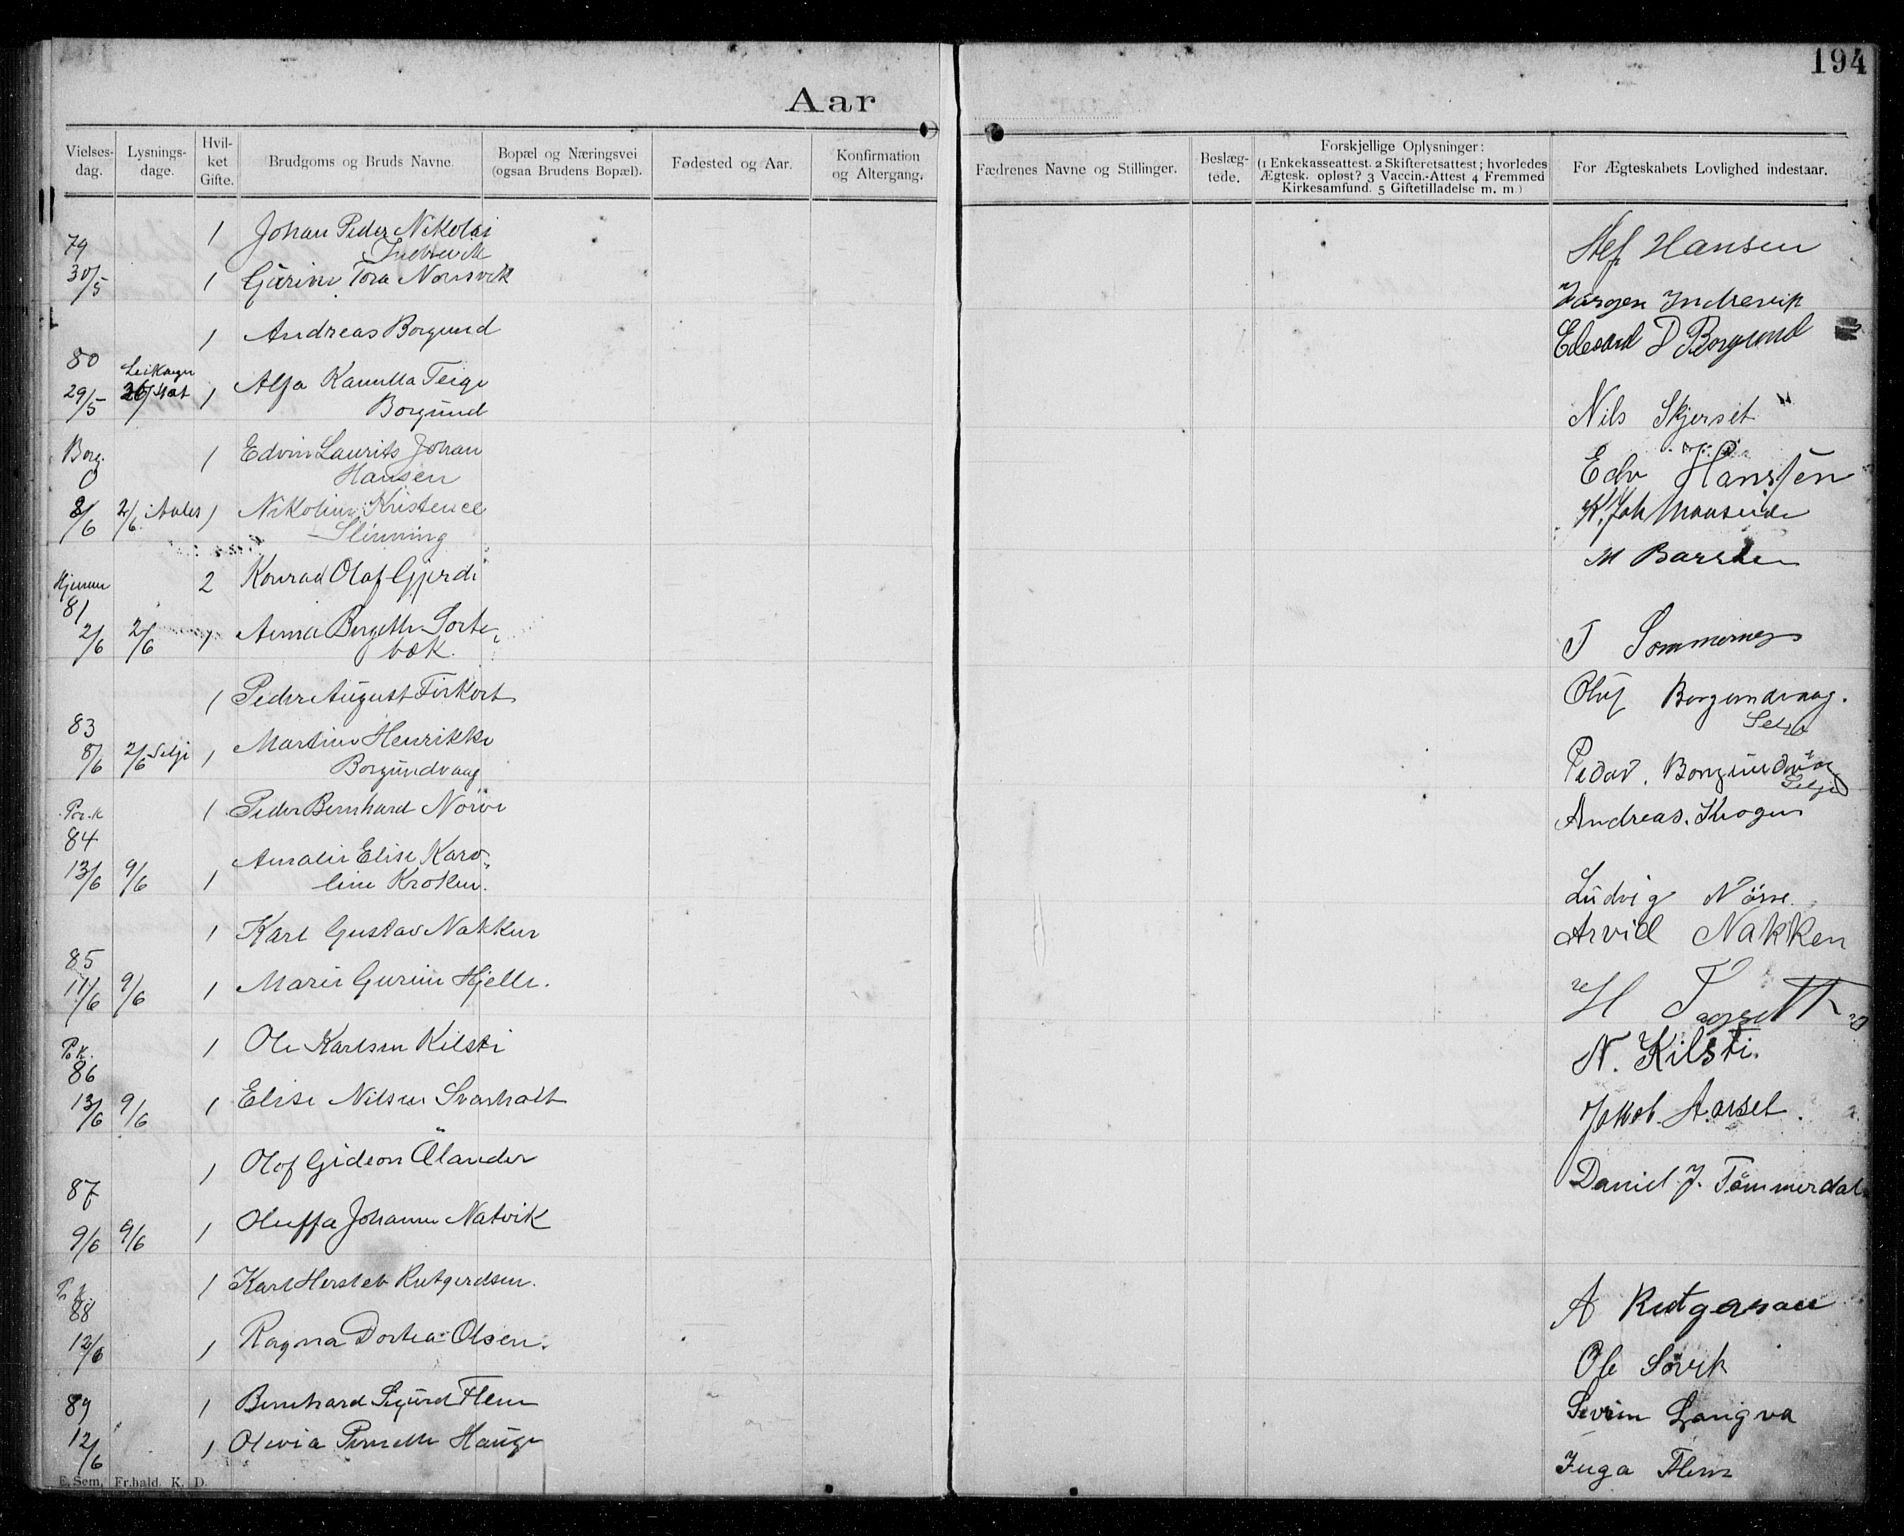 194
Aar
Vielses-
dag.
Lysnings-
dage.
Hvil-
ket
Gifte.
Brudgoms og Bruds Navne.
Bopæl og Næringsvei
(ogsaa Brudens Bopæl).
Fødested og Aar.
Konfirmation
og Altergang.
Fædrenes Navne og Stillinger.
Beslæg-
tede.
Forskjellige Oplysninger:
(1 Enkekasseattest. 2 Skifteretsattest; hvorledes
Ægtesk. opløst? 3 Vaccin.-Attest 4 Fremmed
Kirkesamfund. 5 Giftetilladelse m. m)
For Ægteskabets Lovlighed indestaar.
79 1 Johan Peder Nikolai
Indrevik Hansen
30/5 1 Tora
Jørgen Indrevik
1 Andreas Borgund
Edvard P Borgund
80
29/5 1 Alfa Kamilla Teige
Borgund
Nils Skjerset
Borg. 1 Edvin Laurits Johan
Hansen
Edv Hansen
8/6 2/6 1 Nikoline Kristence
Slinning
2 Konrad Olaf Gjerde
81
2/6 2/6 1 Anna Bergethe Sorte-
bæk.
1 Peder August
Oluf Borgundvaag.
Selje
83
8/6 2/6 Selje 1 Martine Henrikke
Borgundvaag
Peder. Borgundvaag
Selje
1 Peder Bernhard Nörve
Andreas. Krogen
84
13/6 9/6 1 Amalie Elise Karo-
line Kroken.
Ludvig Nörve.
1 Karl Gustav Nakken
Arvid Nakken
85
11/6 9/6 1 Marie Gurine Hjelle.
H
1 Ole Karlsen Kilsti
N. Kilsti.
86
13/6 9/6 1 Elise Nilsen Svarholt
Jakob Aarset.
1 Olof Gideon Ölander
Daniel J. Tömmerdal
87
9/6 9/6 1 Oluffa Johanne Natvik
1 Karl Hersleb Rutgerdsen.
A Rutgersen
88
12/6 1 Ragna Dortea Olsen.
Ole Sövik
89 1 Bernhard Sigurd Flem
Sevrin Langva
12/6 1 Olevia Pernelle Hauge
Inga Flem
E. Sem, Fr.hald. K. D.